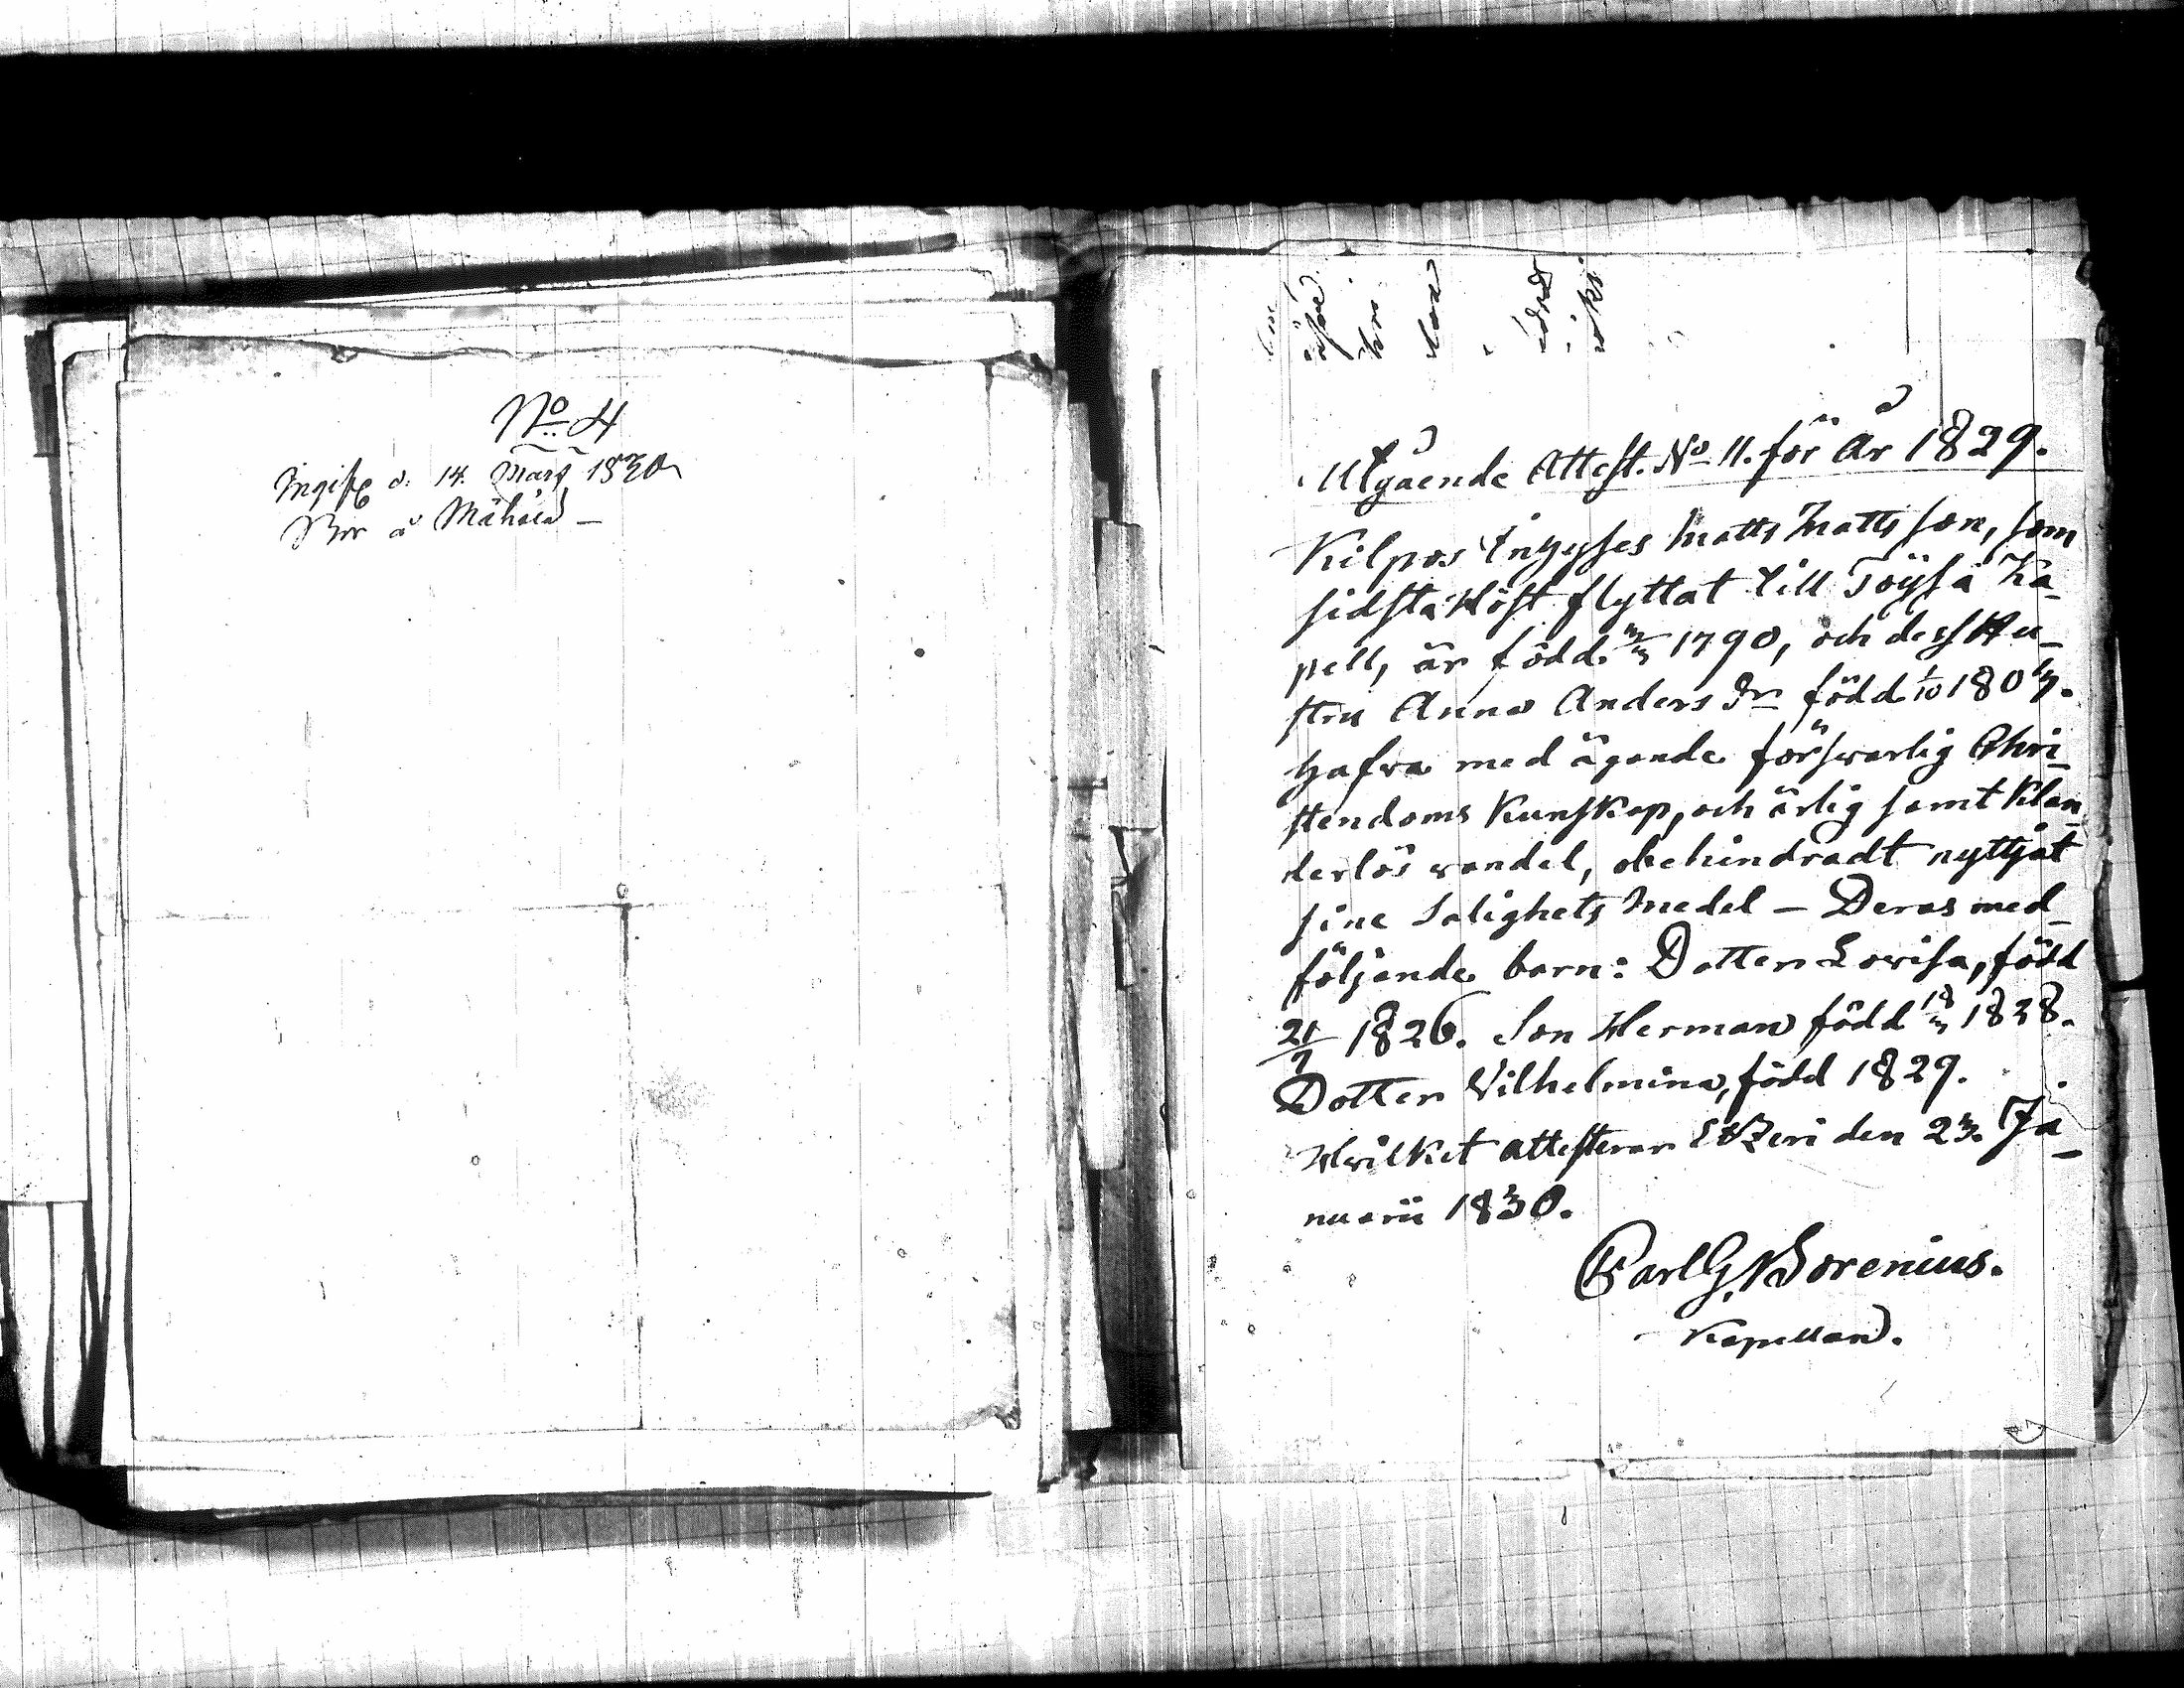 No 4
d. 14. Mars 1830
Utgående Attest. No 11. för År 1829.
Kilpos Inhyses Matts Mattsson, som
sidsta Höst flyttat till Töysä Ka-
pell, är född 1790, och dess Hu-
stru Anna Anders Dr född 1/10 1807.
Hafva med ägande förswarlig Chri-
stendoms Kunskap, och ärlig samt Klan-
derlös wandel, obehindradt nyttjat
sine Salighets Medel – Deras med-
följande barn: Dotter Lovisa, född
21/7 1826. Son Herman född 18/3 1828.
Dotter Vilhelmina, född 1829.
Hvilket attesterar Etzeri den 23. Ja-
nuarii 1830.
Carl G. Borenius.
Kapellan.